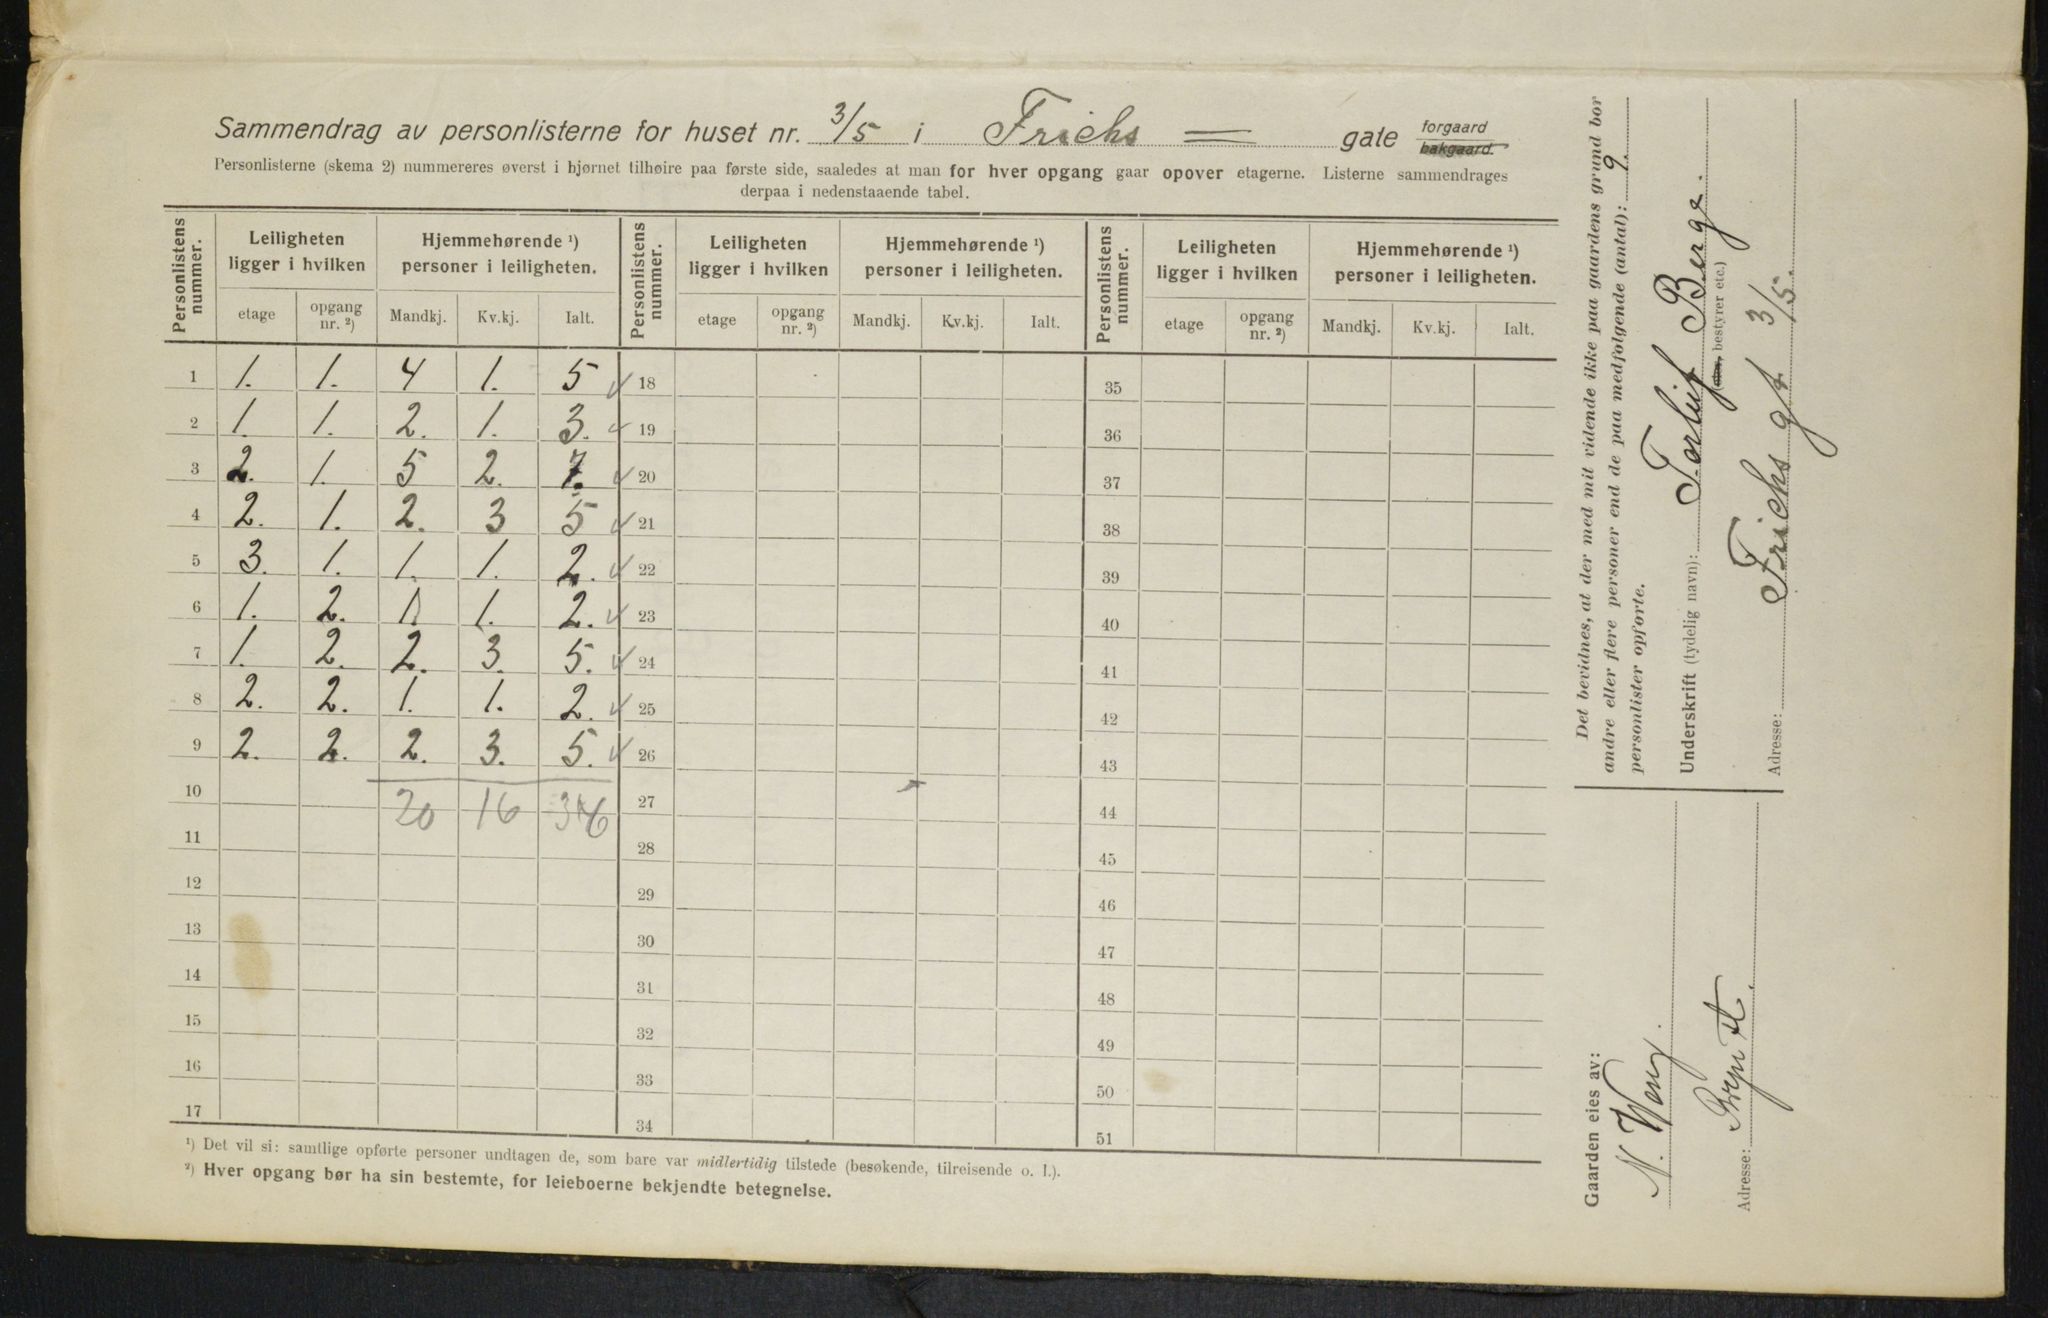 Sammendrag av personlisterne for huset nr. 3/5 i Frichs = gate forgaard bakgaard.
Personlisterne (skema 2) nummereres øverst i hjørnet tilhøire paa første side, saaledes at man for hver opgang gaar opover etagerne. Listerne sammendrages
derpaa i nedenstaaende tabel.
Personlistens nummer. Leiligheten ligger i hvilken Hjemmehørende ¹) personer i leiligheten. Personlistens nummer. Leiligheten ligger i hvilken Hjemmehørende ¹) personer i leiligheten. Personlistens nummer. Leiligheten ligger i hvilken Hjemmehørende ¹) personer i leiligheten.
etage opgang nr. ²) Mandkj. Kv.kj. Ialt. etage opgang nr. ²) Mandkj. Kv.kj. Ialt. etage opgang nr. ²) Mandkj. Kv.kj. Ialt.
1 1. 1. 4 1. 5 ✓ 18 35
2 1. 1. 2. 1. 3. ✓ 19 36
3 2. 1. 5 2. 7. ✓ 20 37
4 2. 1. 2. 3 5 ✓ 21 38
5 3. 1. 1. 1. 2. ✓ 22 39
6 1. 2. 1 1. 2. ✓ 23 40
7 1. 2. 2. 3. 5. ✓ 24 41
8 2. 2. 1. 1. 2. ✓ 25 42
9 2. 2. 2. 3. 5. ✓ 26 43
10 20 16 36 27 44
11 28 45
12 29 46
13 30 47
14 31 48
15 32 49
16 33 50
17 34 51
¹) Det vil si: samtlige opførte personer undtagen de, som bare var midlertidig tilstede (besøkende, tilreisende o. l.).
²) Hver opgang bør ha sin bestemte, for leieboerne bekjendte betegnelse.
Det bevidnes, at der med mit vidende ikke paa gaardens grund bor
andre eller flere personer end de paa medfølgende (antal): 9.
personlister opførte.
Underskrift (tydelig navn): Torleif Berge.
(eier, bestyrer etc.)
Adresse: Frichs gt 3/5.
Gaarden eies av:
N.
Adresse: